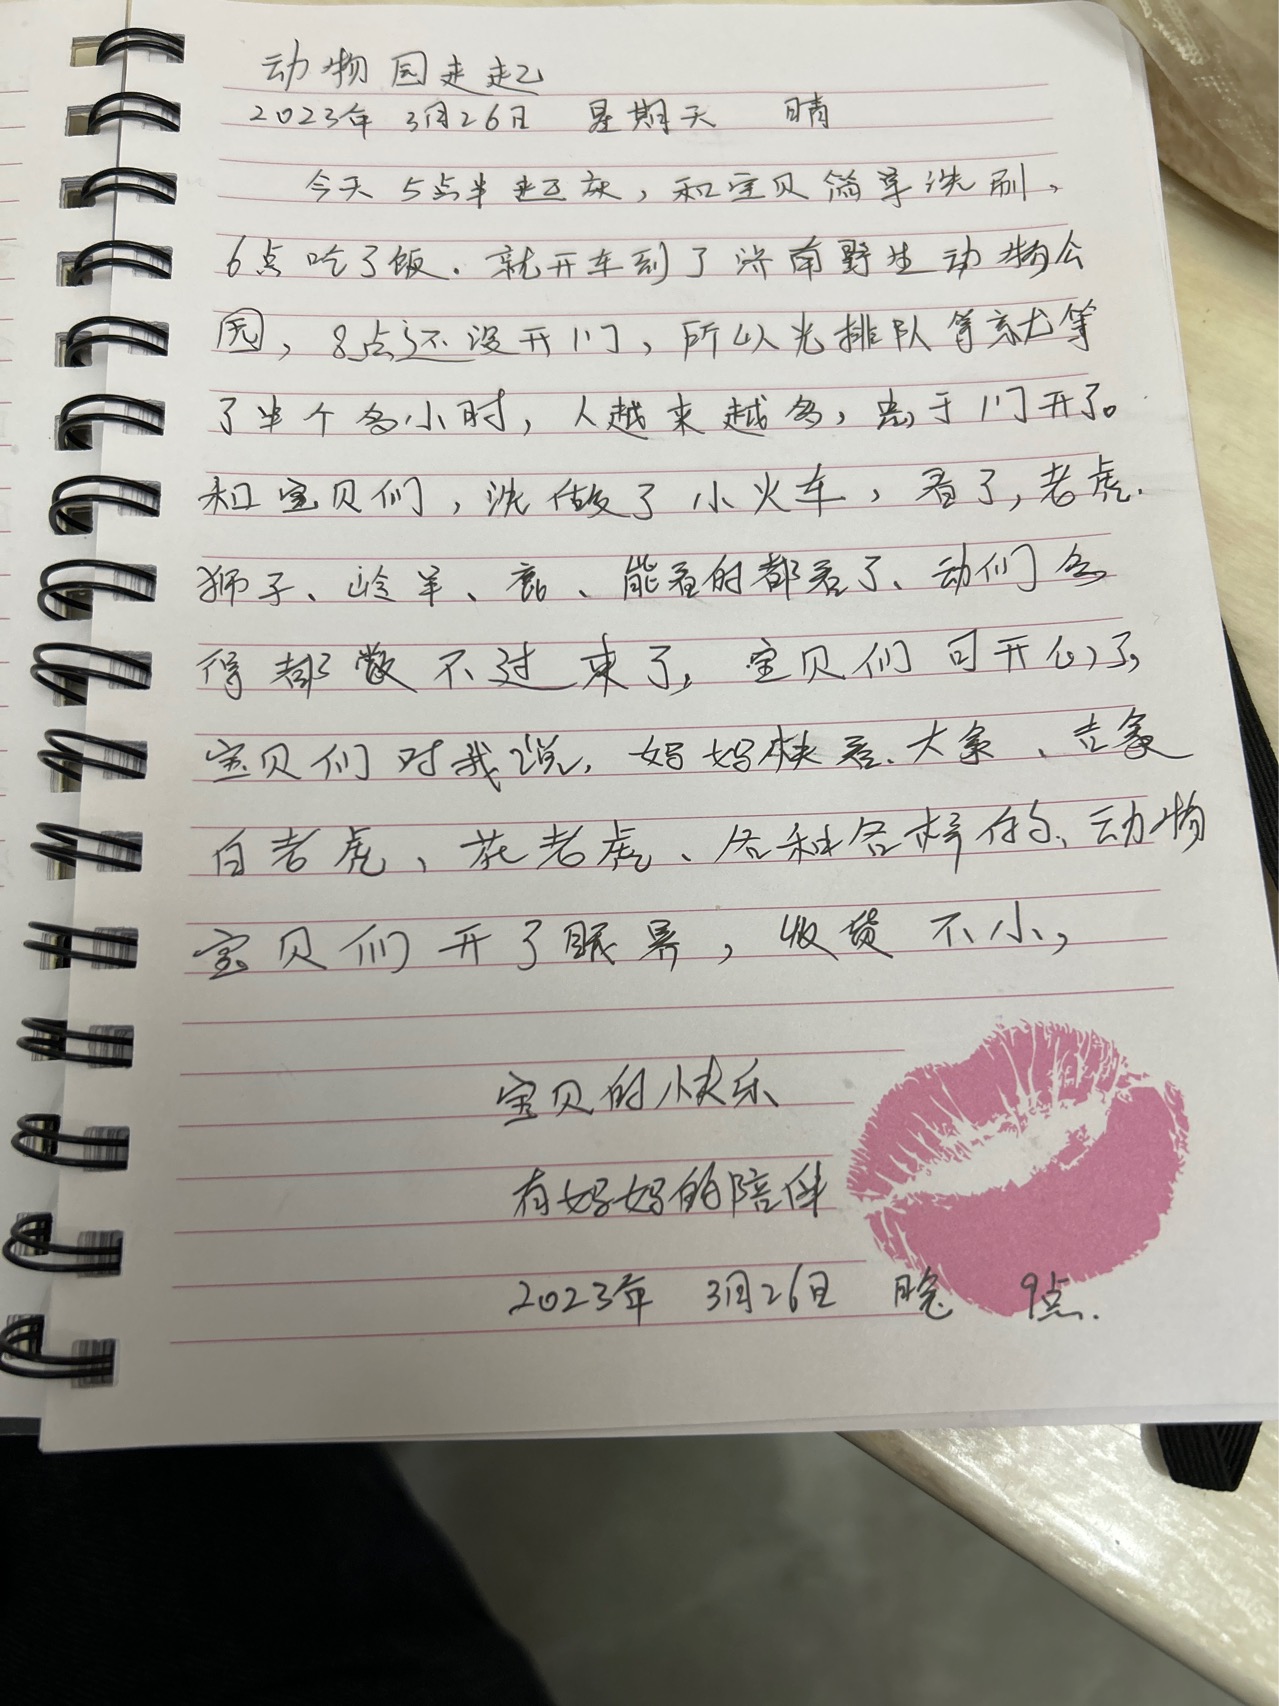 动物园走起
2023年 3月26日 星期天 晴
今天5点半起床，和宝贝简单洗刷，
6点吃了饭.就开车到了济南野生动物公
园，8点还没开门，所以光排队等就等
了半个多小时，人越来越多，总于门开了。
和宝贝们，洗做了小火车，看了，老虎.
狮子、羚羊、鹿、能看的都看了、动们多
得都数不过来了，宝贝们可开心了，
宝贝们对我说，妈妈快看.大象、吉象
白老虎、花老虎、各种各样的、动物
宝贝们开了眼界，收货不小，
宝贝的快乐
有妈妈的陪伴
2023年 3月26日 晚 9点.